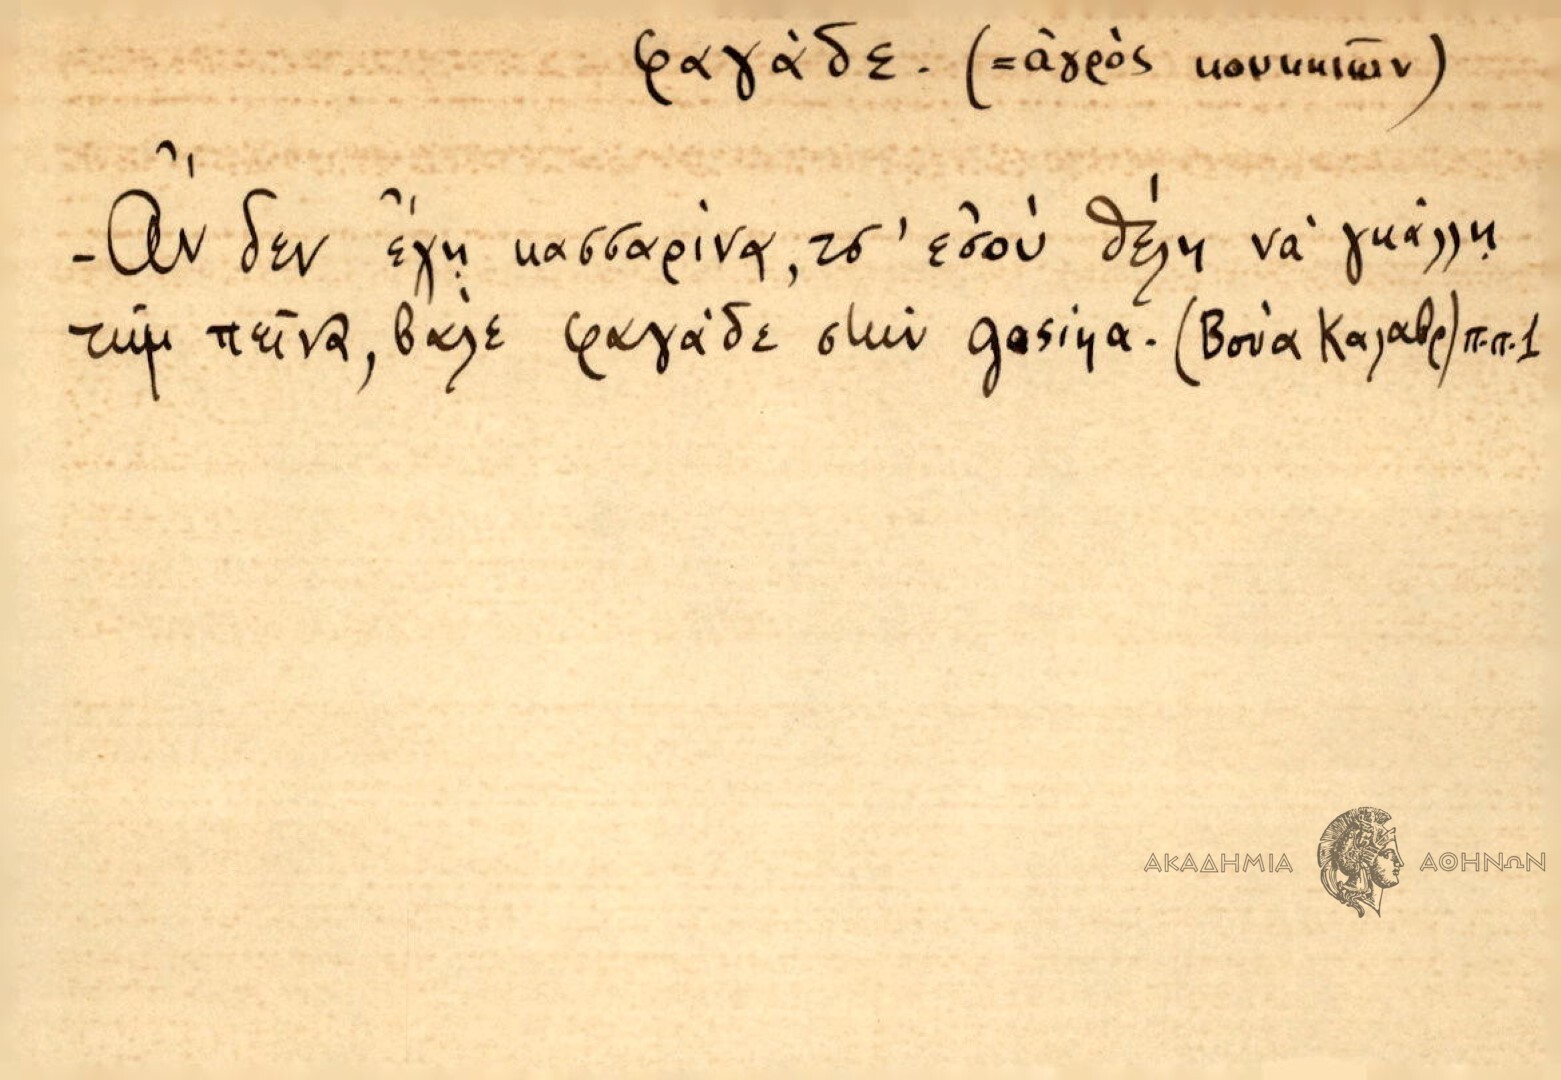 φαγάδε. (=ἀγρὸς κουκκιῶν)
-Ἂν δεν ἔχῃ κασσαρίνα, τσ' ἐσού θέλη νὰ γκάλλῃ
τὴμ πεῖνα, βαλε φαγάδε στὴν gasíya. (Βούα Καλαβρ) π.π.1
ΑΚΑΔΗΜΙΑ ΑΘΗΝΩΝ